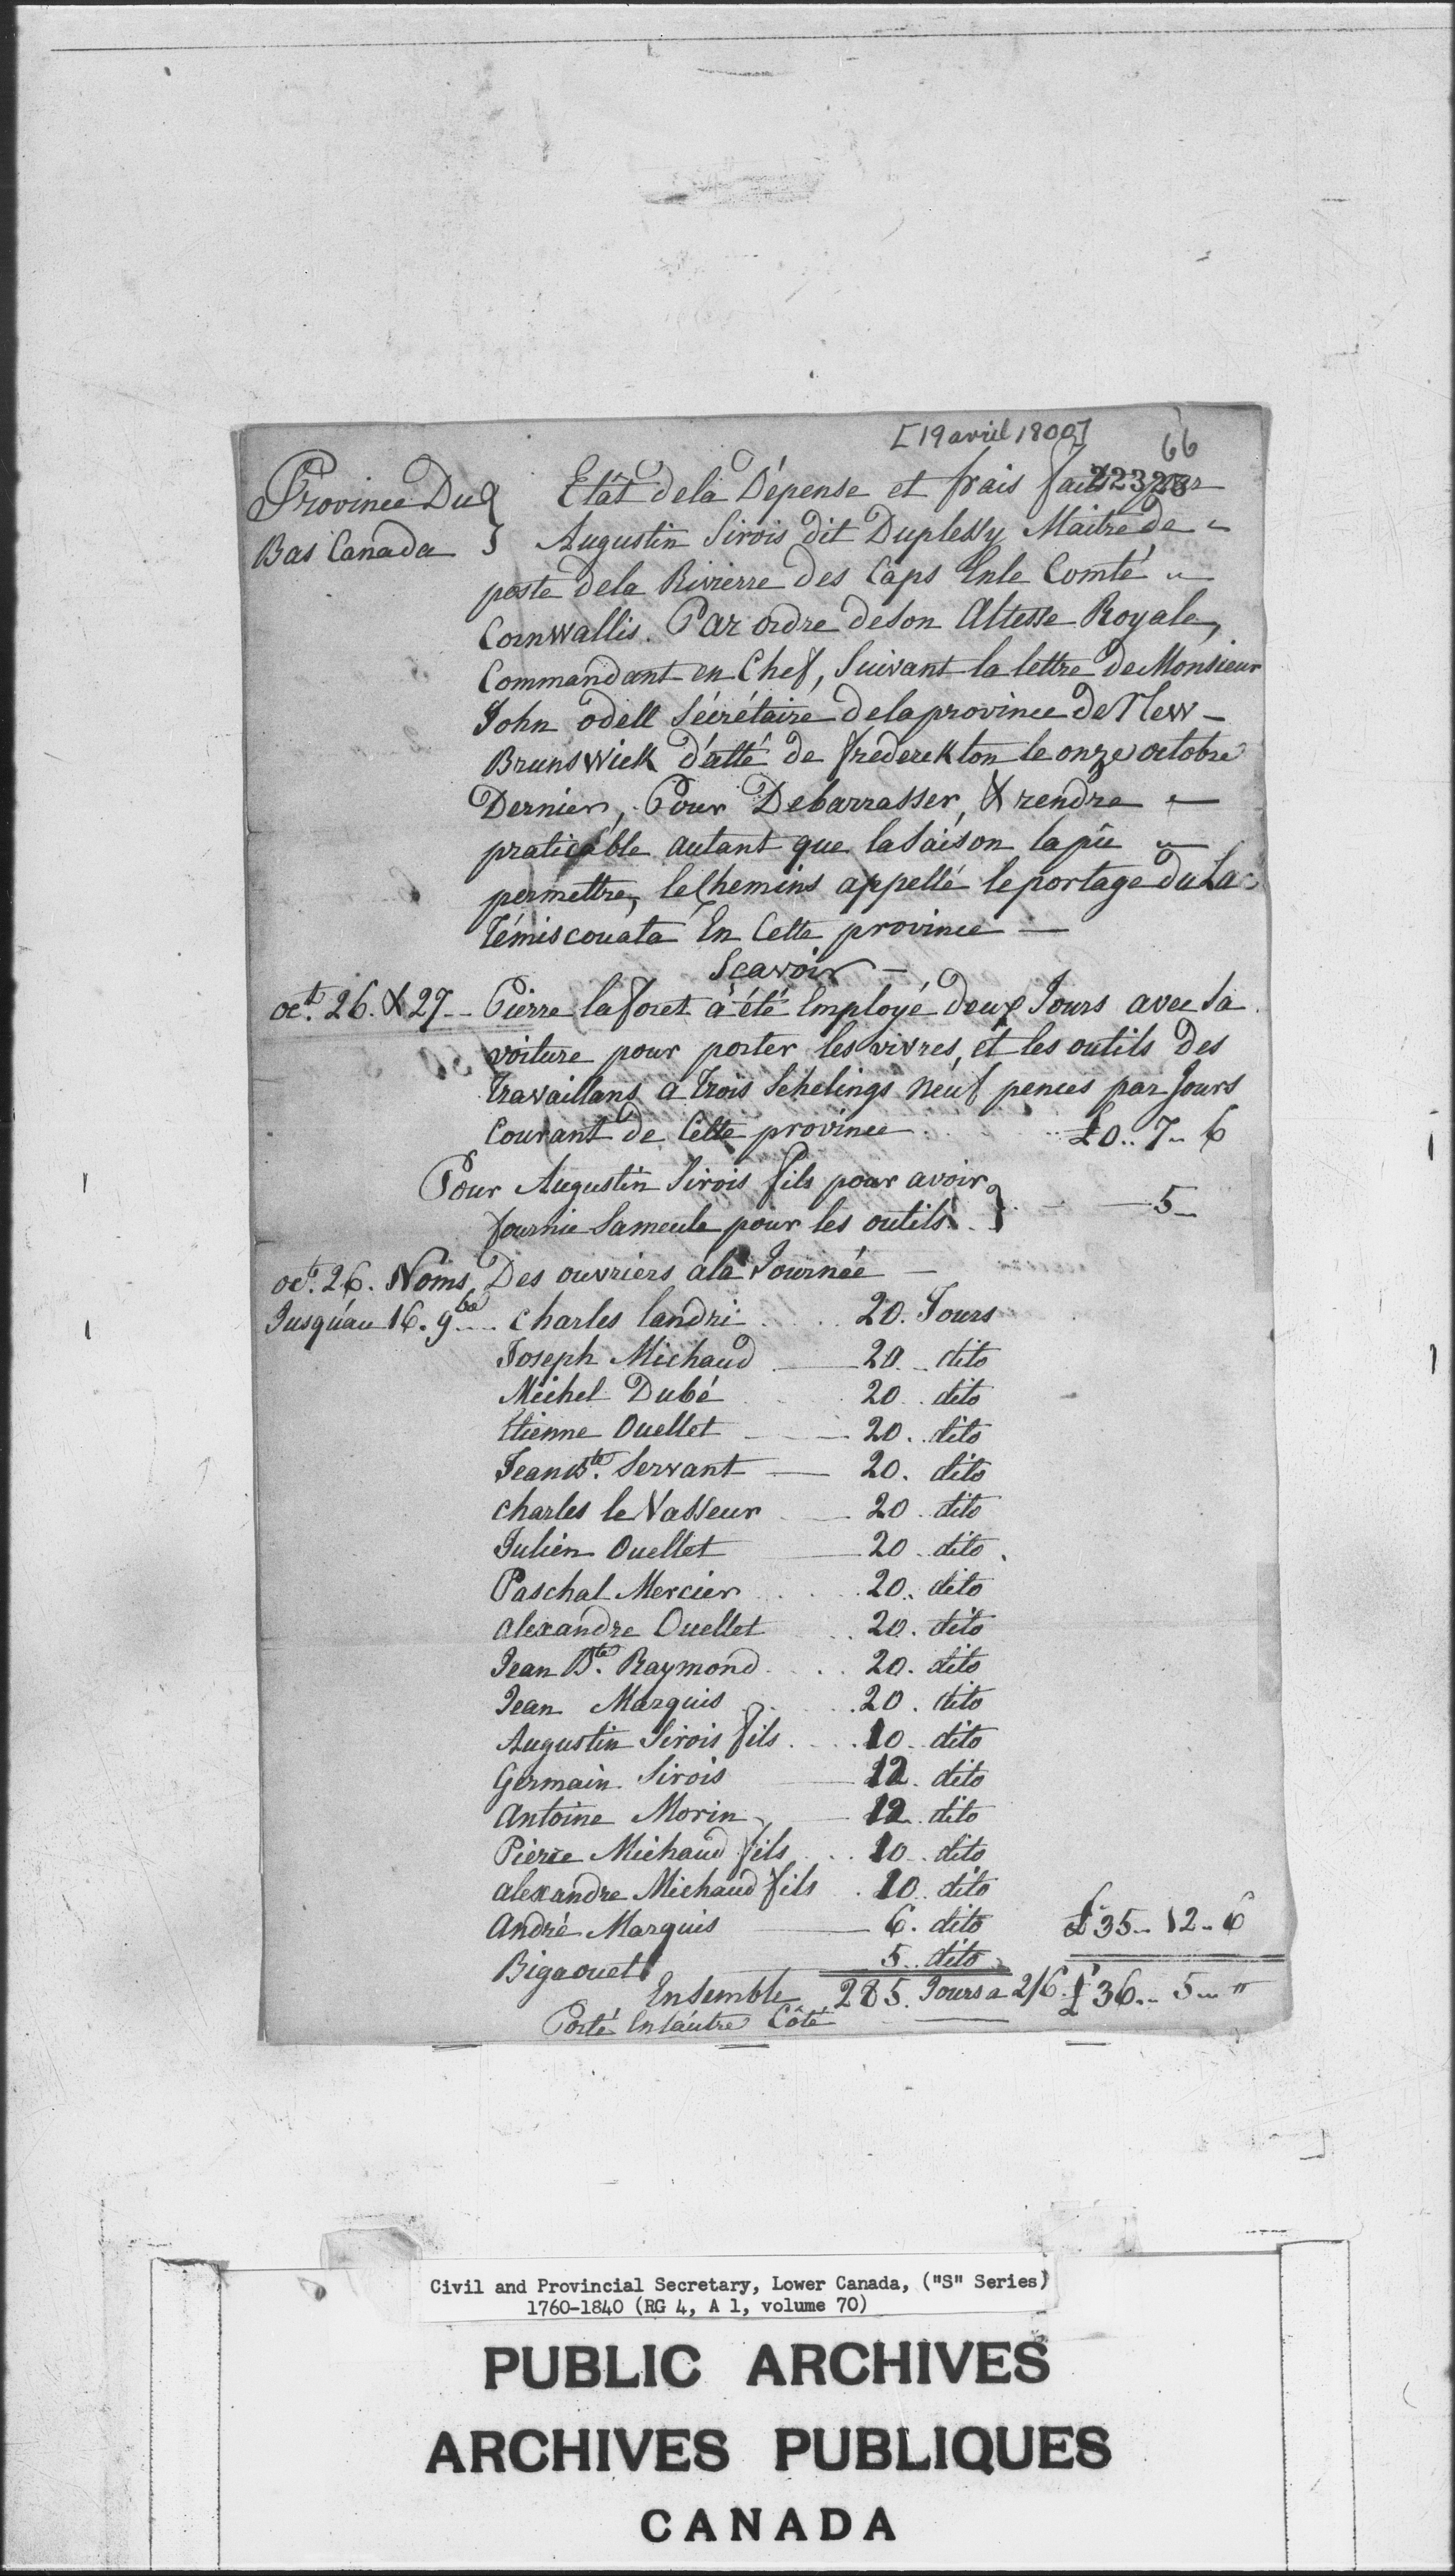 [19 avril 1800]
66
22328
Province Du } Etât dela Dépense et frais faits par
Bas Canada } Augustin Sirois dit Duplessy Maitre de
poste dela Rivierre des Caps Enle Comté
Cornwallis. Par ordre deson Altesse Royale,
Commandant en Chef, Suivant la lettre De Monsieur
John odell Sécrétaire dela province De New-
Brunswick d'atté de frederekton le onze octobre
Dernier, Pour Debarrasser, & rendre
praticable autant que la Saison la pû
permettre, le Chemins appellé le portage Du Lac
Témiscouata En Cette province —
Sçavoir —
oct. 26. & 27 -- Pierre laforet à été Employé deux Jours avec Sa
voiture pour porter les vivres, et les outils Des
travaillans a trois Schelings neuf pences par Jours
Courant de Cette province .. £0.. 7.. 6
Pour Augustin Sirois fils pour avoir }
fournie Sa meule pour les outils. } — 5 —
oct. 26. Noms Des ouvriers à la Journée —
Jusqu'au 16. 9bre .... Charles landri .... 20. Jours
Joseph Michaud — 20 .. dito
Michel Dubé .. 20 .. dito
Etienne Ouellet — 20 .. dito
Jean Bte. Servant — 20. dito
Charles le Vasseur — 20 . dito
Julien Ouellet — 20 .. dito
Paschal Mercier .... 20. dito
alexandre Ouellet .. 20. dito
Jean Bte. Raymond .... 20. dito
Jean Marquis .... 20. dito
Augustin Sirois fils .... 10 .. dito
Germain Sirois — 12. dito
Antoine Morin — 12 .. dito
Pierre Michaud fils .. 10 .. dito
alexandre Michaud fils . 10 .. dito
André Marquis — 6. dito £35 .. 12 .. 6
Bigaouet 5 .. dito
Ensemble 285. Jours a 2/6. £36 .. 5 .. "
Porté En l'autre Côté
Civil and Provincial Secretary, Lower Canada, ("S" Series)
1760-1840 (RG 4, A 1, volume 70)
PUBLIC ARCHIVES
ARCHIVES PUBLIQUES
CANADA